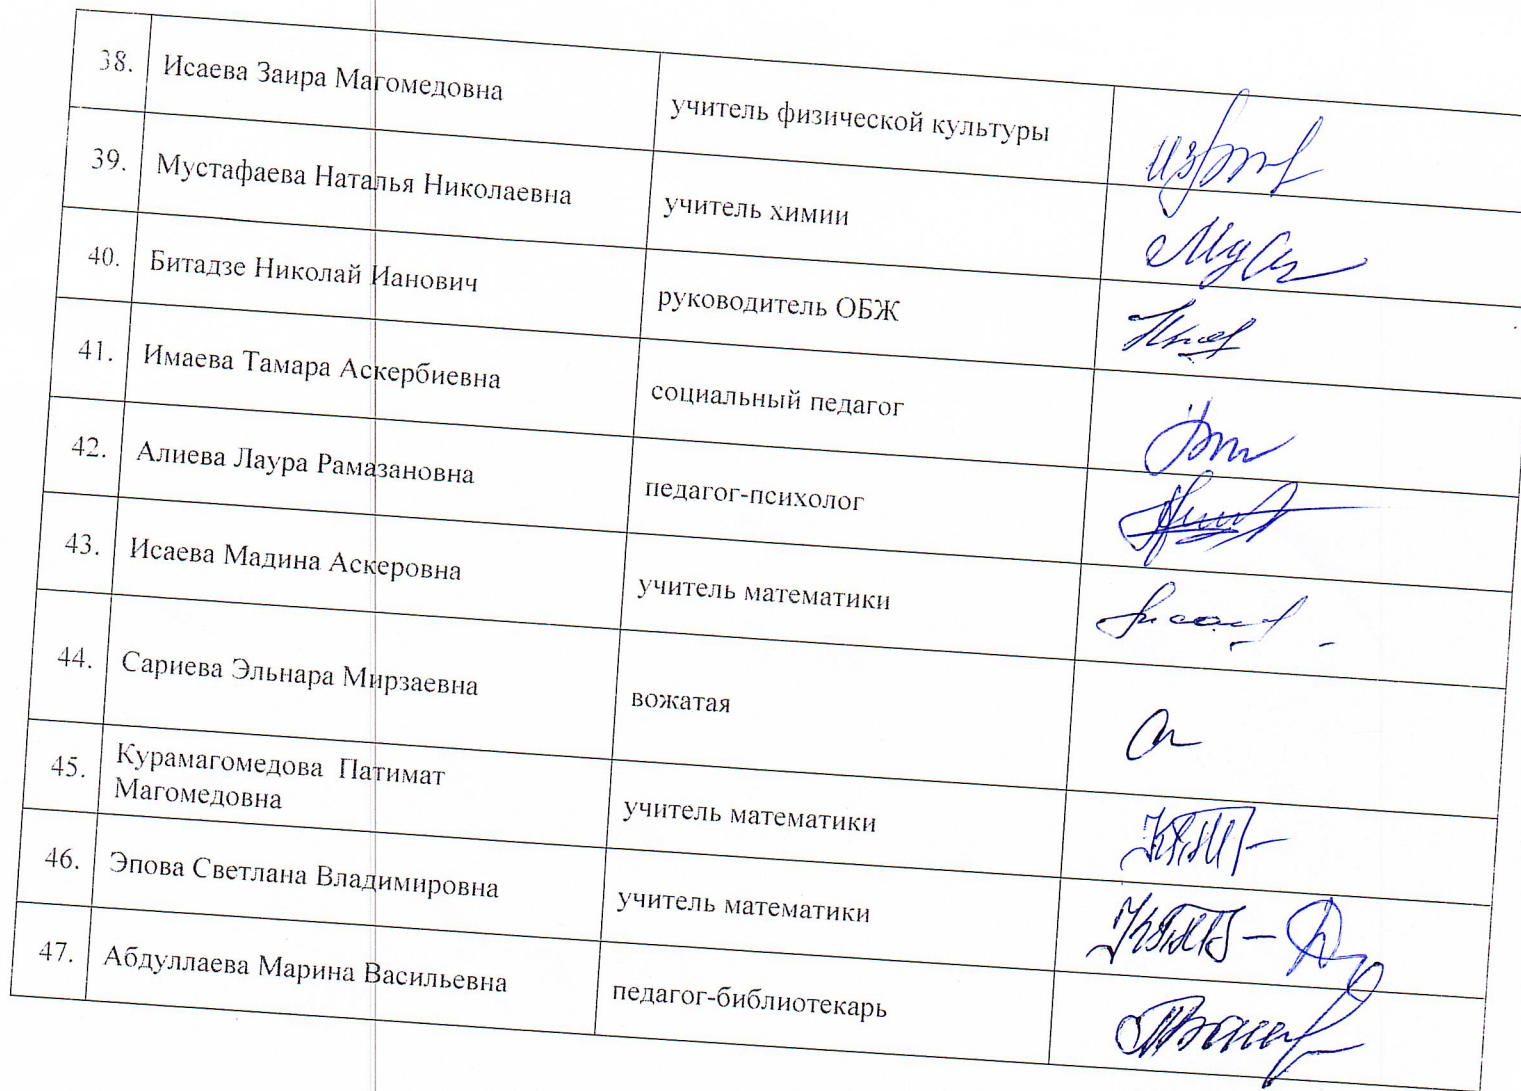 38. Исаева Заира Магомедовна учитель физической культуры
39. Мустафаева Наталья Николаевна учитель химии
40. Битадзе Николай Ианович руководитель ОБЖ
41. Имаева Тамара Аскербиевна социальный педагог
42. Алиева Лаура Рамазановна педагог-психолог
43. Исаева Мадина Аскеровна учитель математики
44. Сариева Эльнара Мирзаевна вожатая
45. Курамагомедова Патимат
Магомедовна учитель математики
46. Эпова Светлана Владимировна учитель математики
47. Абдуллаева Марина Васильевна педагог-библиотекарь